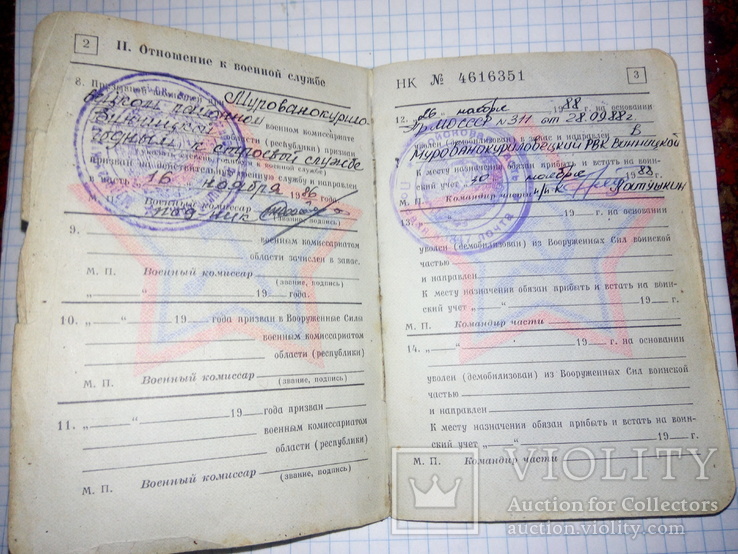 2
II. Отношение к военной службе
8. Мурованокурило-
вецком районном
военном комиссариате
Винницкой области (республики) признан
годным к строевой службе
призван на действительную военную службу и направлен
в часть 16 ноября 1986 года
М. П. Военный комиссар
под-ник
(звание, подпись)
9.
военным комиссариатом
области зачислен в запас.
М. П. Военный комиссар
(звание, подпись)
„ “ 19 года.
10. „ “ 19 года призван в Вооруженные Силы
военным комиссариатом
области (республики)
М. П. Военный комиссар
(звание, подпись)
11. „ “ 19 года призван
военным комиссариатом
области (республики)
М. П. Военный комиссар
(звание, подпись)
НК № 4616351
3
12. „26“ ноября 1988 г. на основании
Пр МО СССР № 311 от 28.09.88 г.
уволен (демобилизован) в запас и направлен в
Мурованокуриловецкий РВК Винницкой
К месту назначения обязан прибыть и встать на воин-
ский учет „30“ ноября 1988 г.
М. П. Командир части п/п-к
13. „ “ 19 г. на основании
уволен (демобилизован) из Вооруженных Сил воинской
частью
и направлен
К месту назначения обязан прибыть и встать на воин-
ский учет „ “ 19 г.
М. П. Командир части
14. „ “ 19 г. на основании
уволен (демобилизован) из Вооруженных Сил воинской
частью
и направлен
К месту назначения обязан прибыть и встать на воин-
ский учет „ “ 19 г.
М. П. Командир части
VIOLITY
Auction for Collectors
auction.violity.com